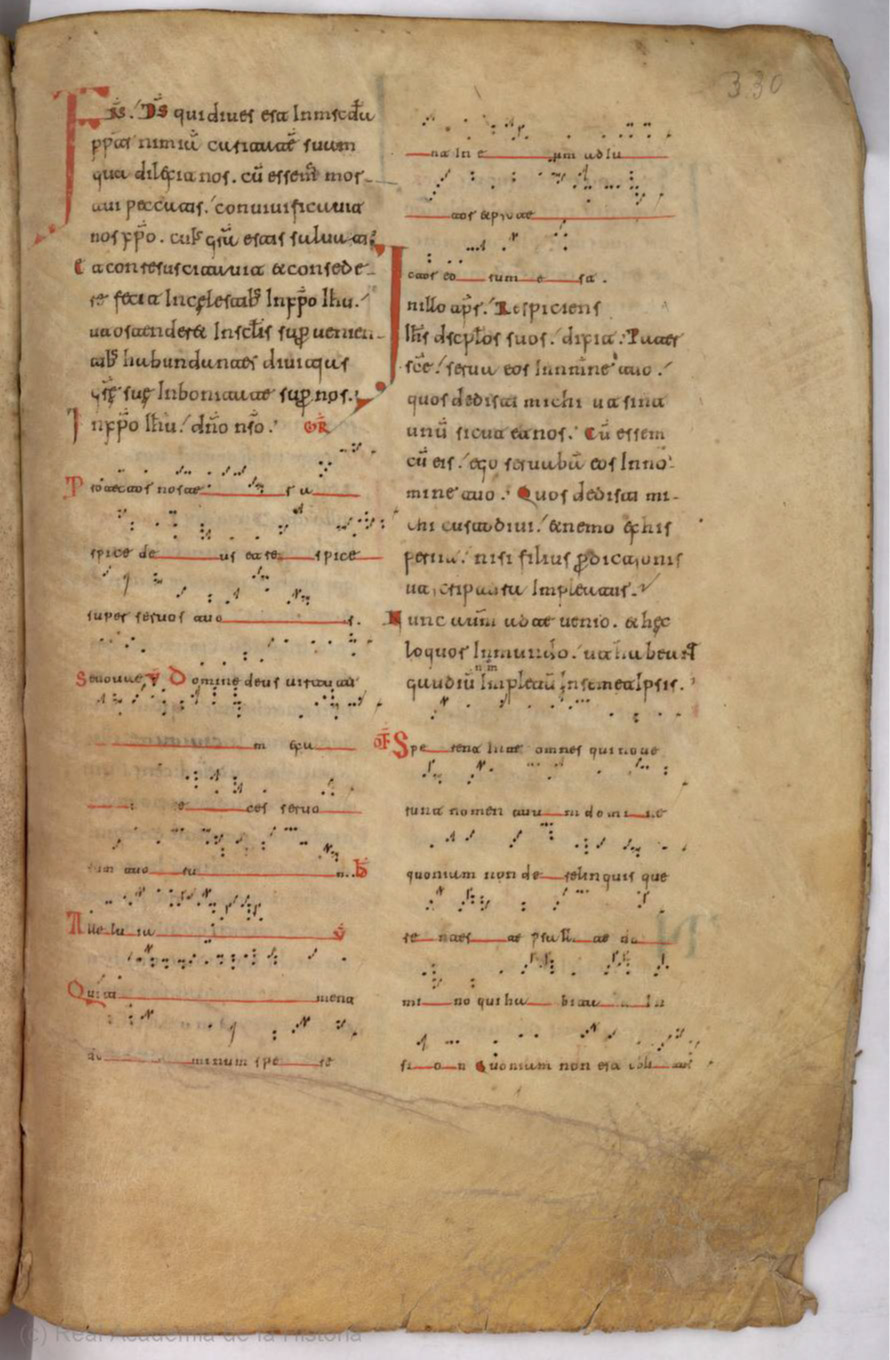 Fr̄s. D̄s qui dives est In misc̄dia
pp̄t nimiū caritatē suam
qua dilexit nos. cū essem̄ mor-
tui peccatis. convivificavit
nos xp̄o. cuīs grā estis salvati.
Et conresuscitavit et consede-
re fecit In celestib̄ In xp̄o Ih̄u.
ut ostenderet In scl̄is sup̄ venien-
tib̄ habundantes divitias
gr̄e sue In bonitate sup̄ nos.
In xp̄o Ih̄u. dn̄o nr̄o. GR̄
Protector noster a
spice deus et re spice
super servos tuo s.
V̄ Domine deus virtutu
m exau
ces servo
rum tuo ru m.
Alleluia V̄
Qui ti ment
do minum spe re
330
nt In e um adiu
tor et protec
tor eo rum e st.
In illo tp̄r. Respiciens
Ih̄s dscpl̄os suos. dixit. Pater
sc̄e. serva eos In nmīne tuo.
quos dedisti michi ut sint
unū sicut et nos. Cū essem
cū eis. ego servabā eos In no
mine tuo. Quos dedisti mi-
chi custodivi. et nemo ex his
periit. nisi filius p̄dicionis
ut scriptura Impleatur.
Nunc autm̄ ad te venio. et hec
loquor In mundo. ut habeant
gaudiū Impletū In semetIpsis.
OF̄ Spe rent In te omnes qui nove
runt nomen tuu m domi ne
quoniam non de relinquis que
re ntes te psalli te do
mi no qui ha bitat In
si o n Quoniam non est obli tus
(c) Real Academia de la Historia